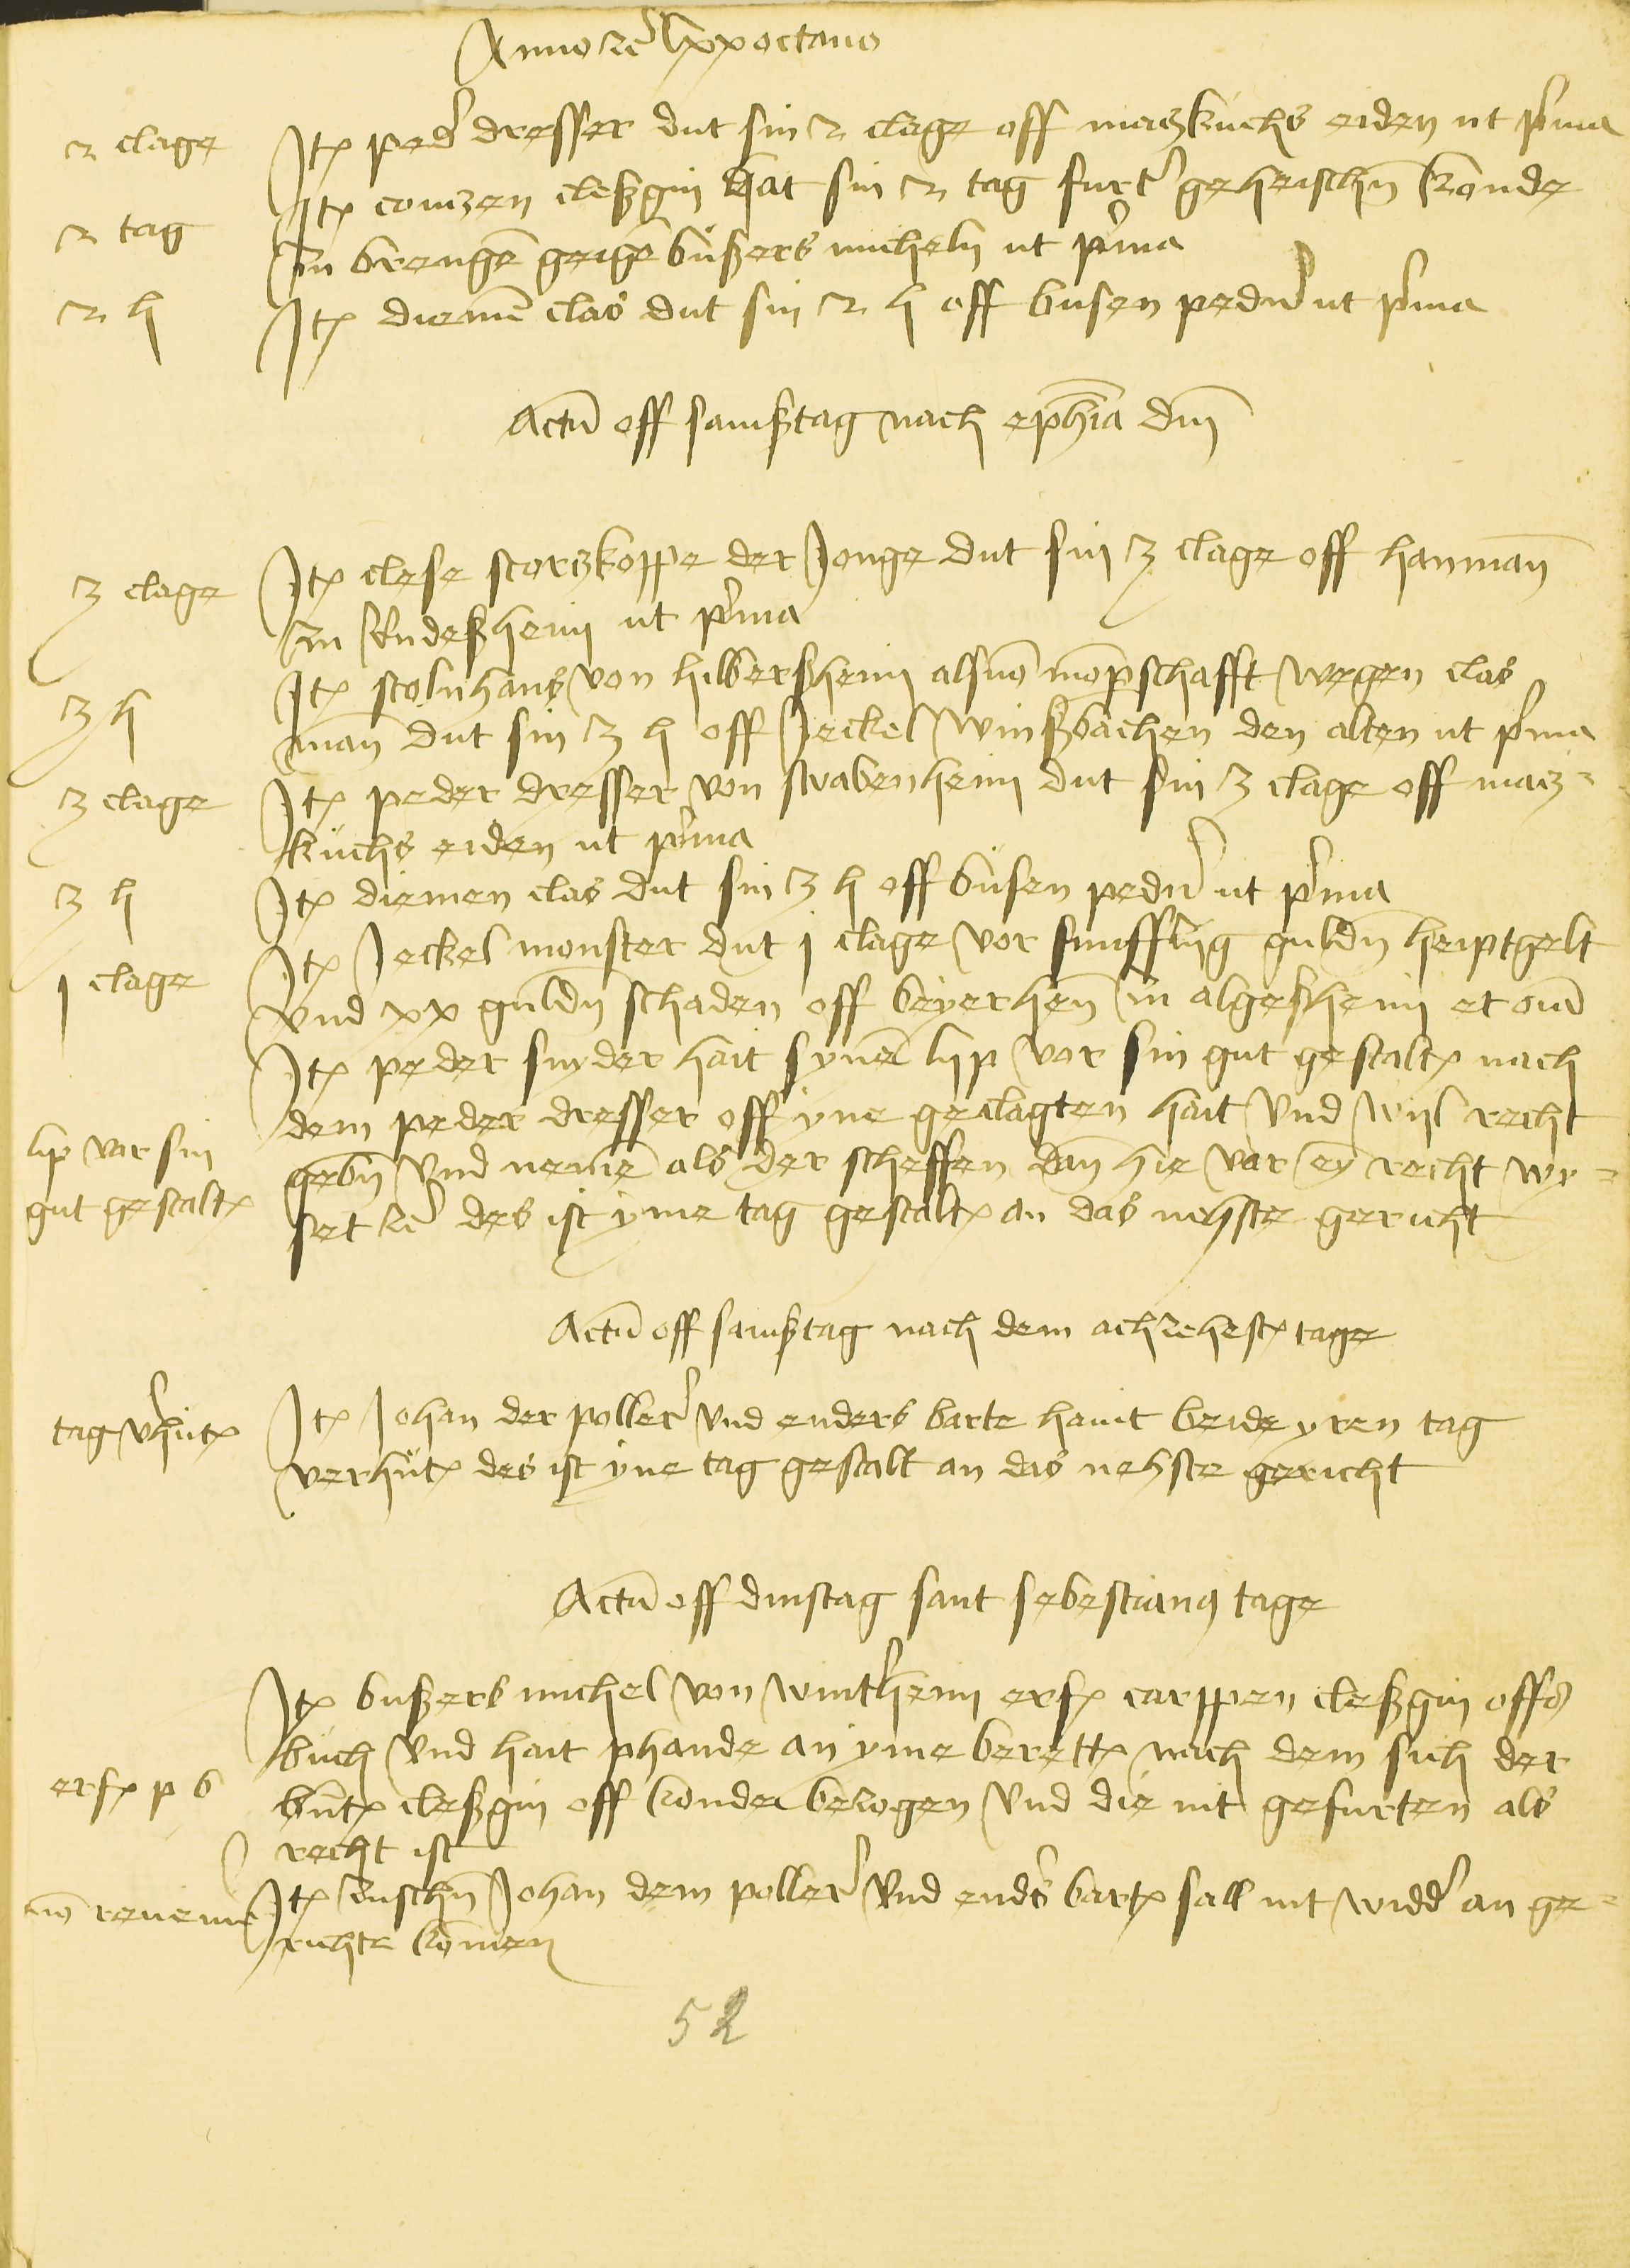 Anno zcͤ lxxoctavo
2 clage
Itꝫ pedͤ dresser dut sin 2 clage off maczkuchs eiden ut pͥma
2 tag
Itꝫ contzen cleßgin hat sin 2 tag furtͤ geheischn̄ konde
zu brengē geigē bußers micheln ut pͥma
2 h
Itꝫ diemē clas dut sin 2 h off busen pedͤn ut pͥma
Actū off samßtag nach epħia dn̄i
3 clage
Itꝫ clese storczkoppe der Jonge dut sin 3 clage off hanman̄
zu Rudeßheim ut pͥma
3 h
Itꝫ stolnhans von hilberßheim als mōpschafft wegen clas
man̄ dut sin 3 h off Jeckel winßbachen den alten ut pͥma
3 clage
Itꝫ peder dresser von swabenheim dut sin 3 clage off macz-
kuchs eiden ut pͥma
3 h
Itꝫ diemen clas dut sin 3 h off busen pedͤn ut pͥma
1 clage
Itꝫ Jeckel monster dut 1 clage vor funfftzig guldn̄ heiptgelt
vnd xx guldn̄ schaden off beyerhen̄ zu algeßheim et om̄
lip vor sin
gut gestaltꝫ
Itꝫ peder snyder hait synē lip vor sin gut gestaltꝫ nach
dem peder dresser off yne geclagten hait vnd wil recht
gebn̄ vnd nemē als der scheffen dan̄ hie vor eȳ recht wy-
set zcͤ des ist yme tag gestaltꝫ an das nehste gericht
Actū off samßtag nach dem achzehestꝫ tage
tag vͤhutꝫ
Itꝫ Johan der pollerͤ vnd enders barte haint beide yren tag
verhutꝫ des ist yne tag gestalt an das nehste gericht
Actū off dinstag sant sebestianꝰ tage
Itꝫ bußers michel von wintͤheim erfꝫ carppen cleßgin offs
buch vnd hait phande an yme berettꝫ nach dem sich der
erfꝫ p b
buntꝫ cleßgin off konde bezogen vnd die nit gefurten als
recht ist
nō reuenir
Itꝫ zuschn̄ Johan dem pollerͤ vnd endͤs bartꝫ sall nit widdͤ an ge-
richte komen
52